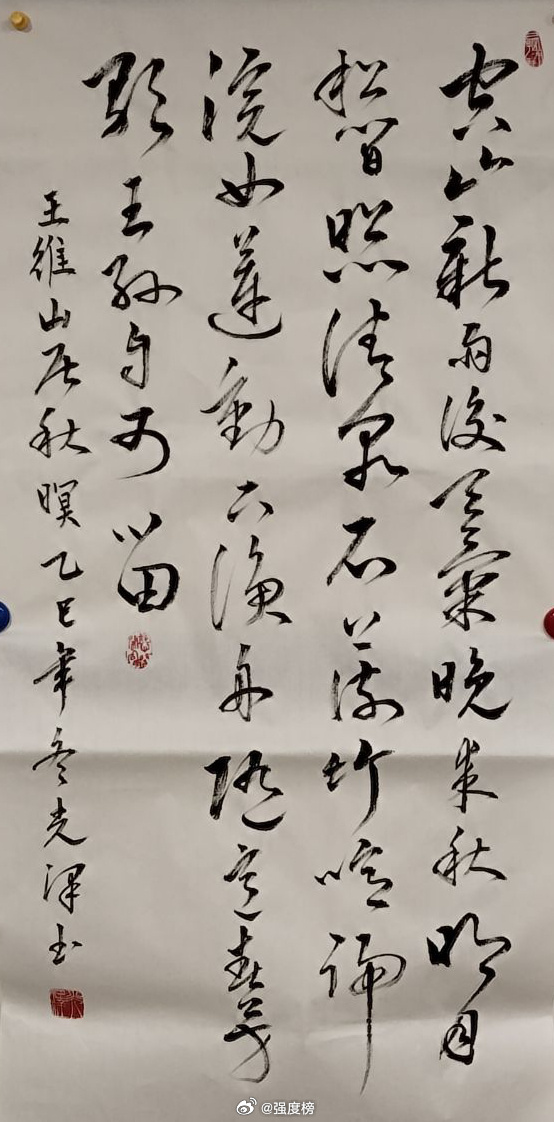 空山新雨後天氣晚来秋明月
松間照清泉石上流竹喧歸
浣女蓮動下漁舟随意春芳
歇王孫自可留
王維山居秋暝乙巳年冬光泽书
@强度榜